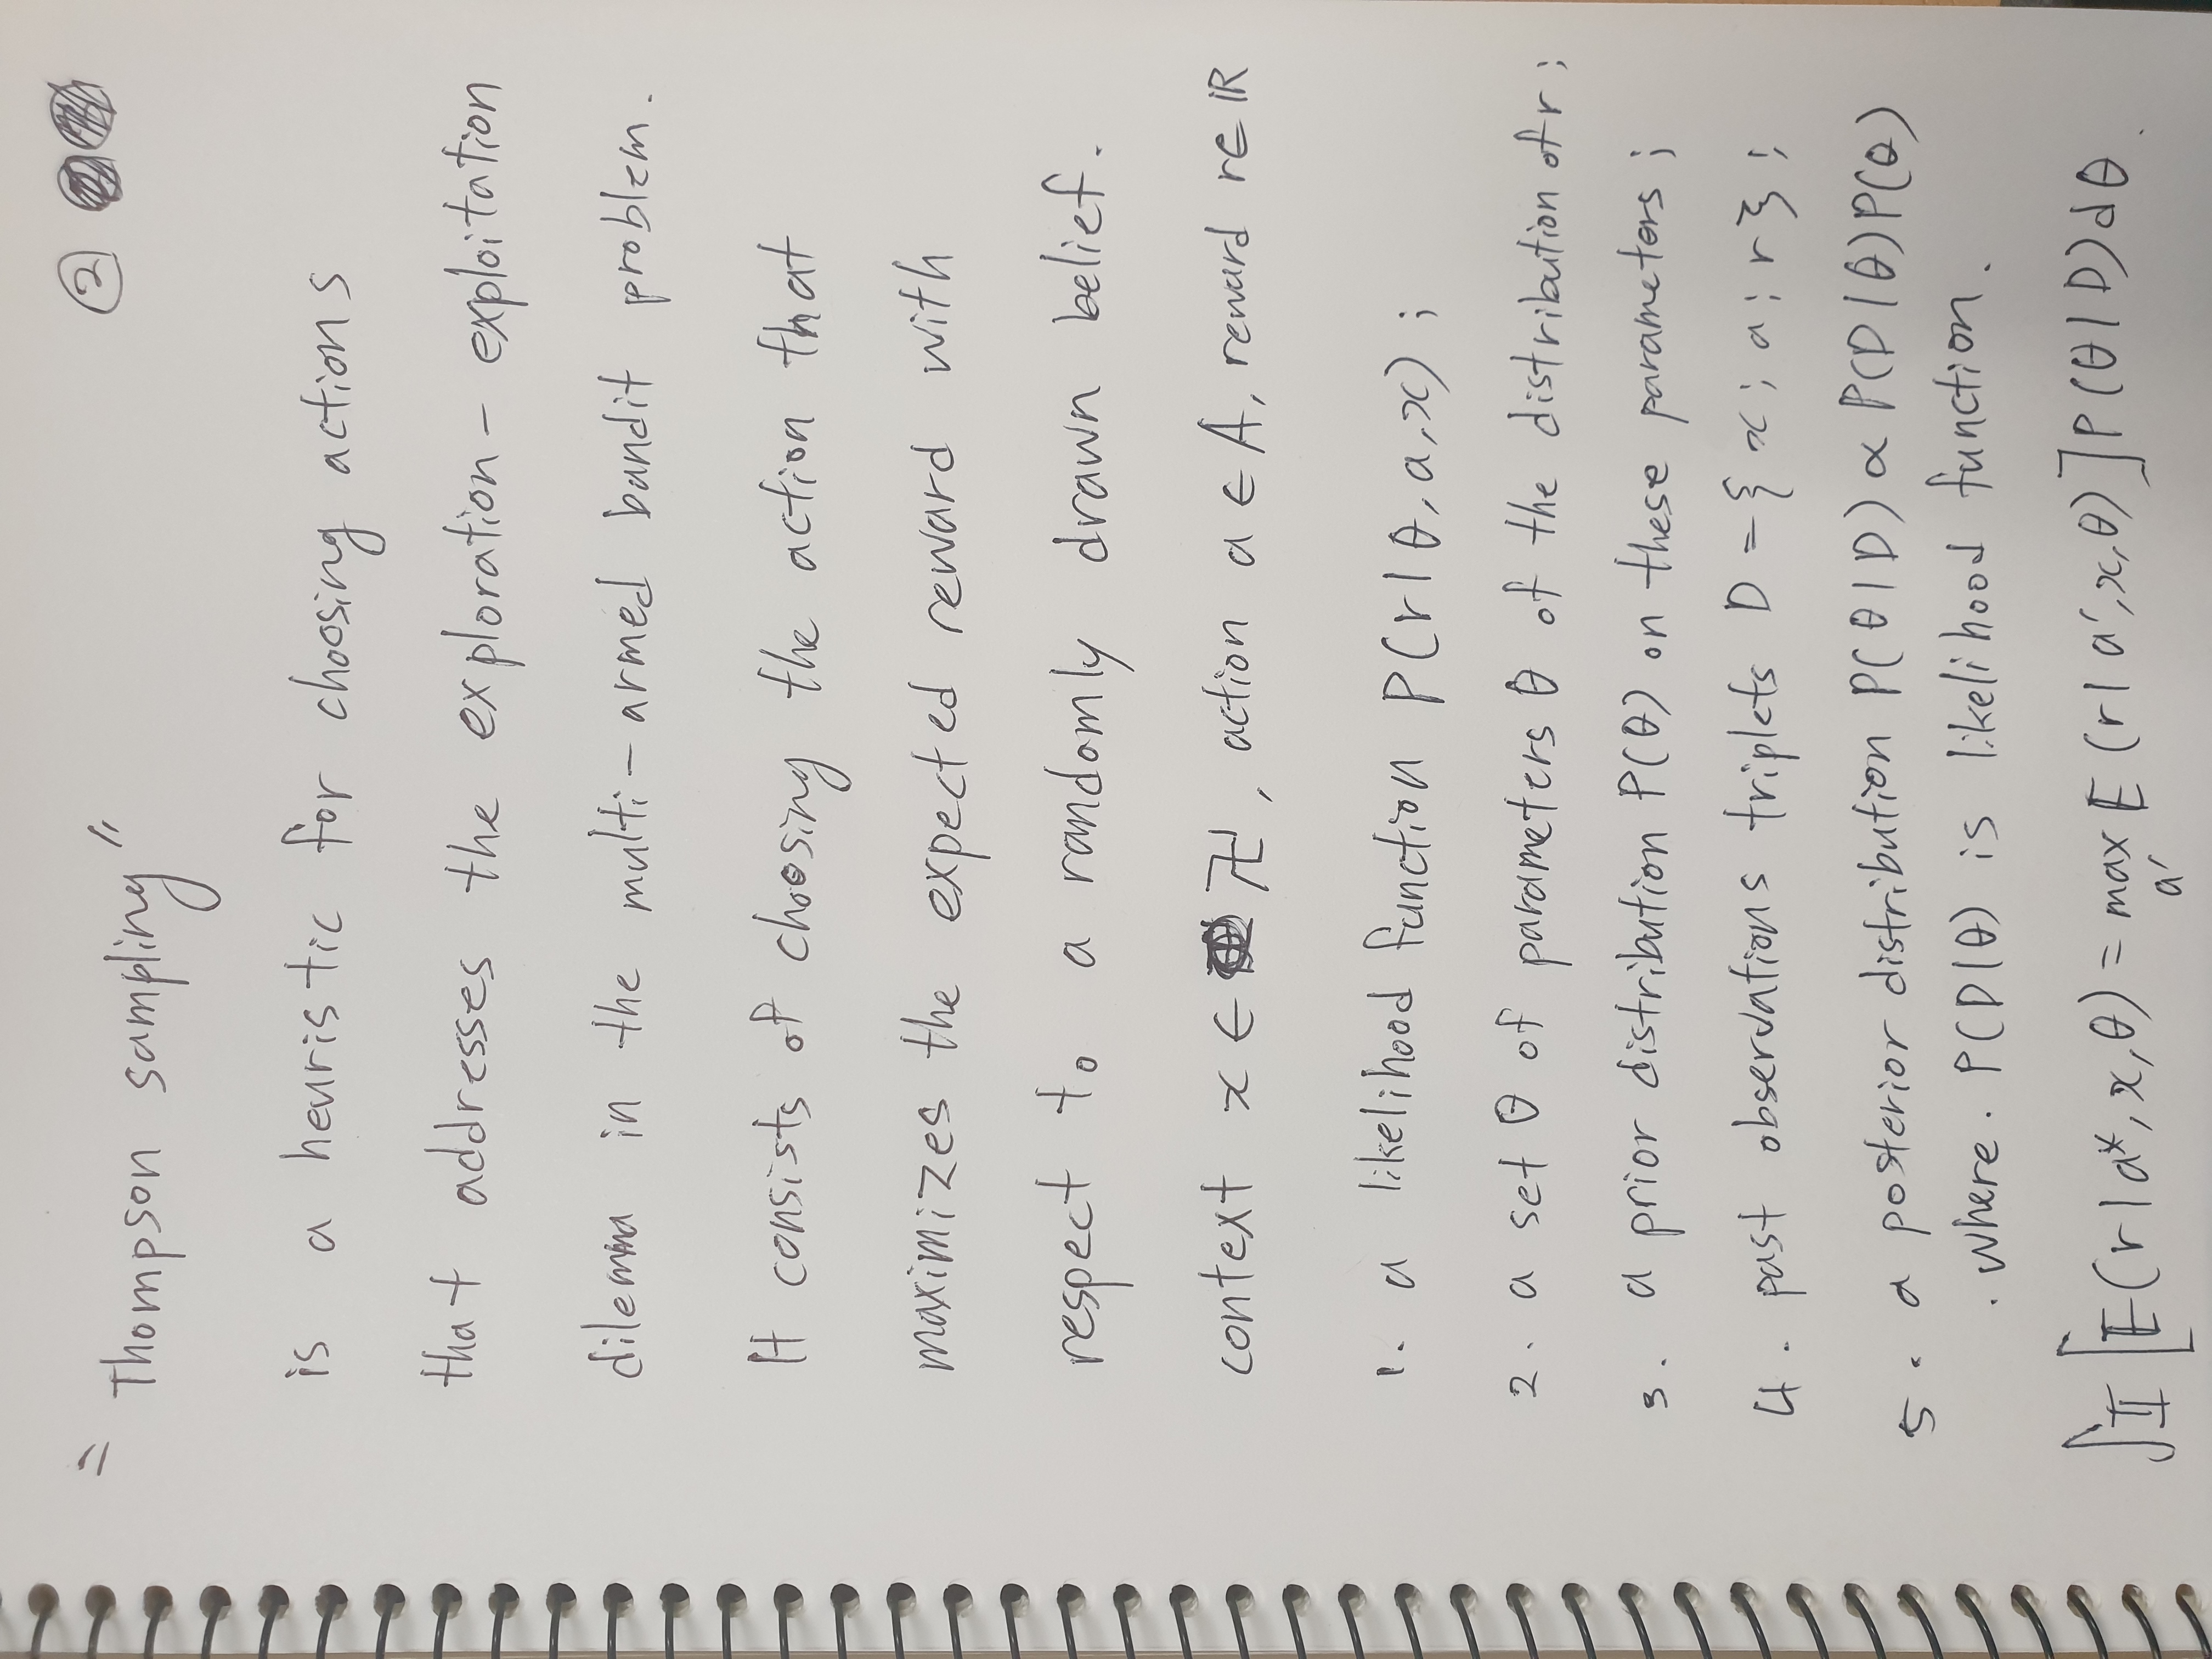 "Thompson sampling" ②
is a heuristic for choosing actions
that addresses the exploration - exploitation
dilemma in the multi - armed bandit problem.
It consists of choosing the action that
maximizes the expected reward with
respect to a randomly drawn belief.
context x ∈ , action a ∈ A, reward r ∈ ℝ
1. a likelihood function P(r|θ,a,x) ;
2. a set Θ of parameters θ of the distribution of r ;
3. a prior distribution P(θ) on these parameters ;
4. past observations triplets D = { x ; a ; r } ;
5. a posterior distribution P(θ|D) ∝ P(D|θ)P(θ)
. where . P(D|θ) is likelihood function.
∫𝕀[𝔼(r|a*,x,θ) = max 𝔼(r|a',x,θ)]P(θ|D)dθ.
a'